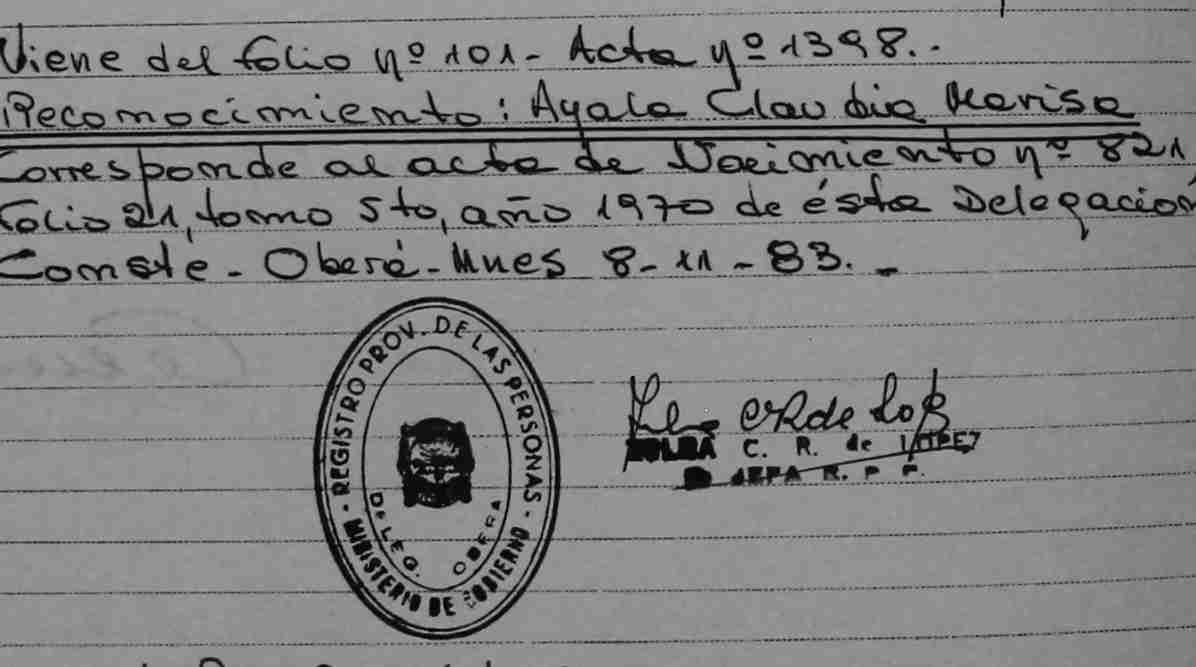 Viene del folio nº 101- Acta nº 1398..
Reconocimiento: Ayala Claudia Marisa
Corresponde al acta de Nacimiento nº 821
folio 21, tomo 5to, año 1970 de ésta Delegación
Conste. - Oberá - Mnes 8-11-83. -
- REGISTRO PROV. DE LAS PERSONAS -
MINISTERIO DE GOBIERNO
DELEG. OBERA
C. R. de LOPEZ
JEFA R. P. P.